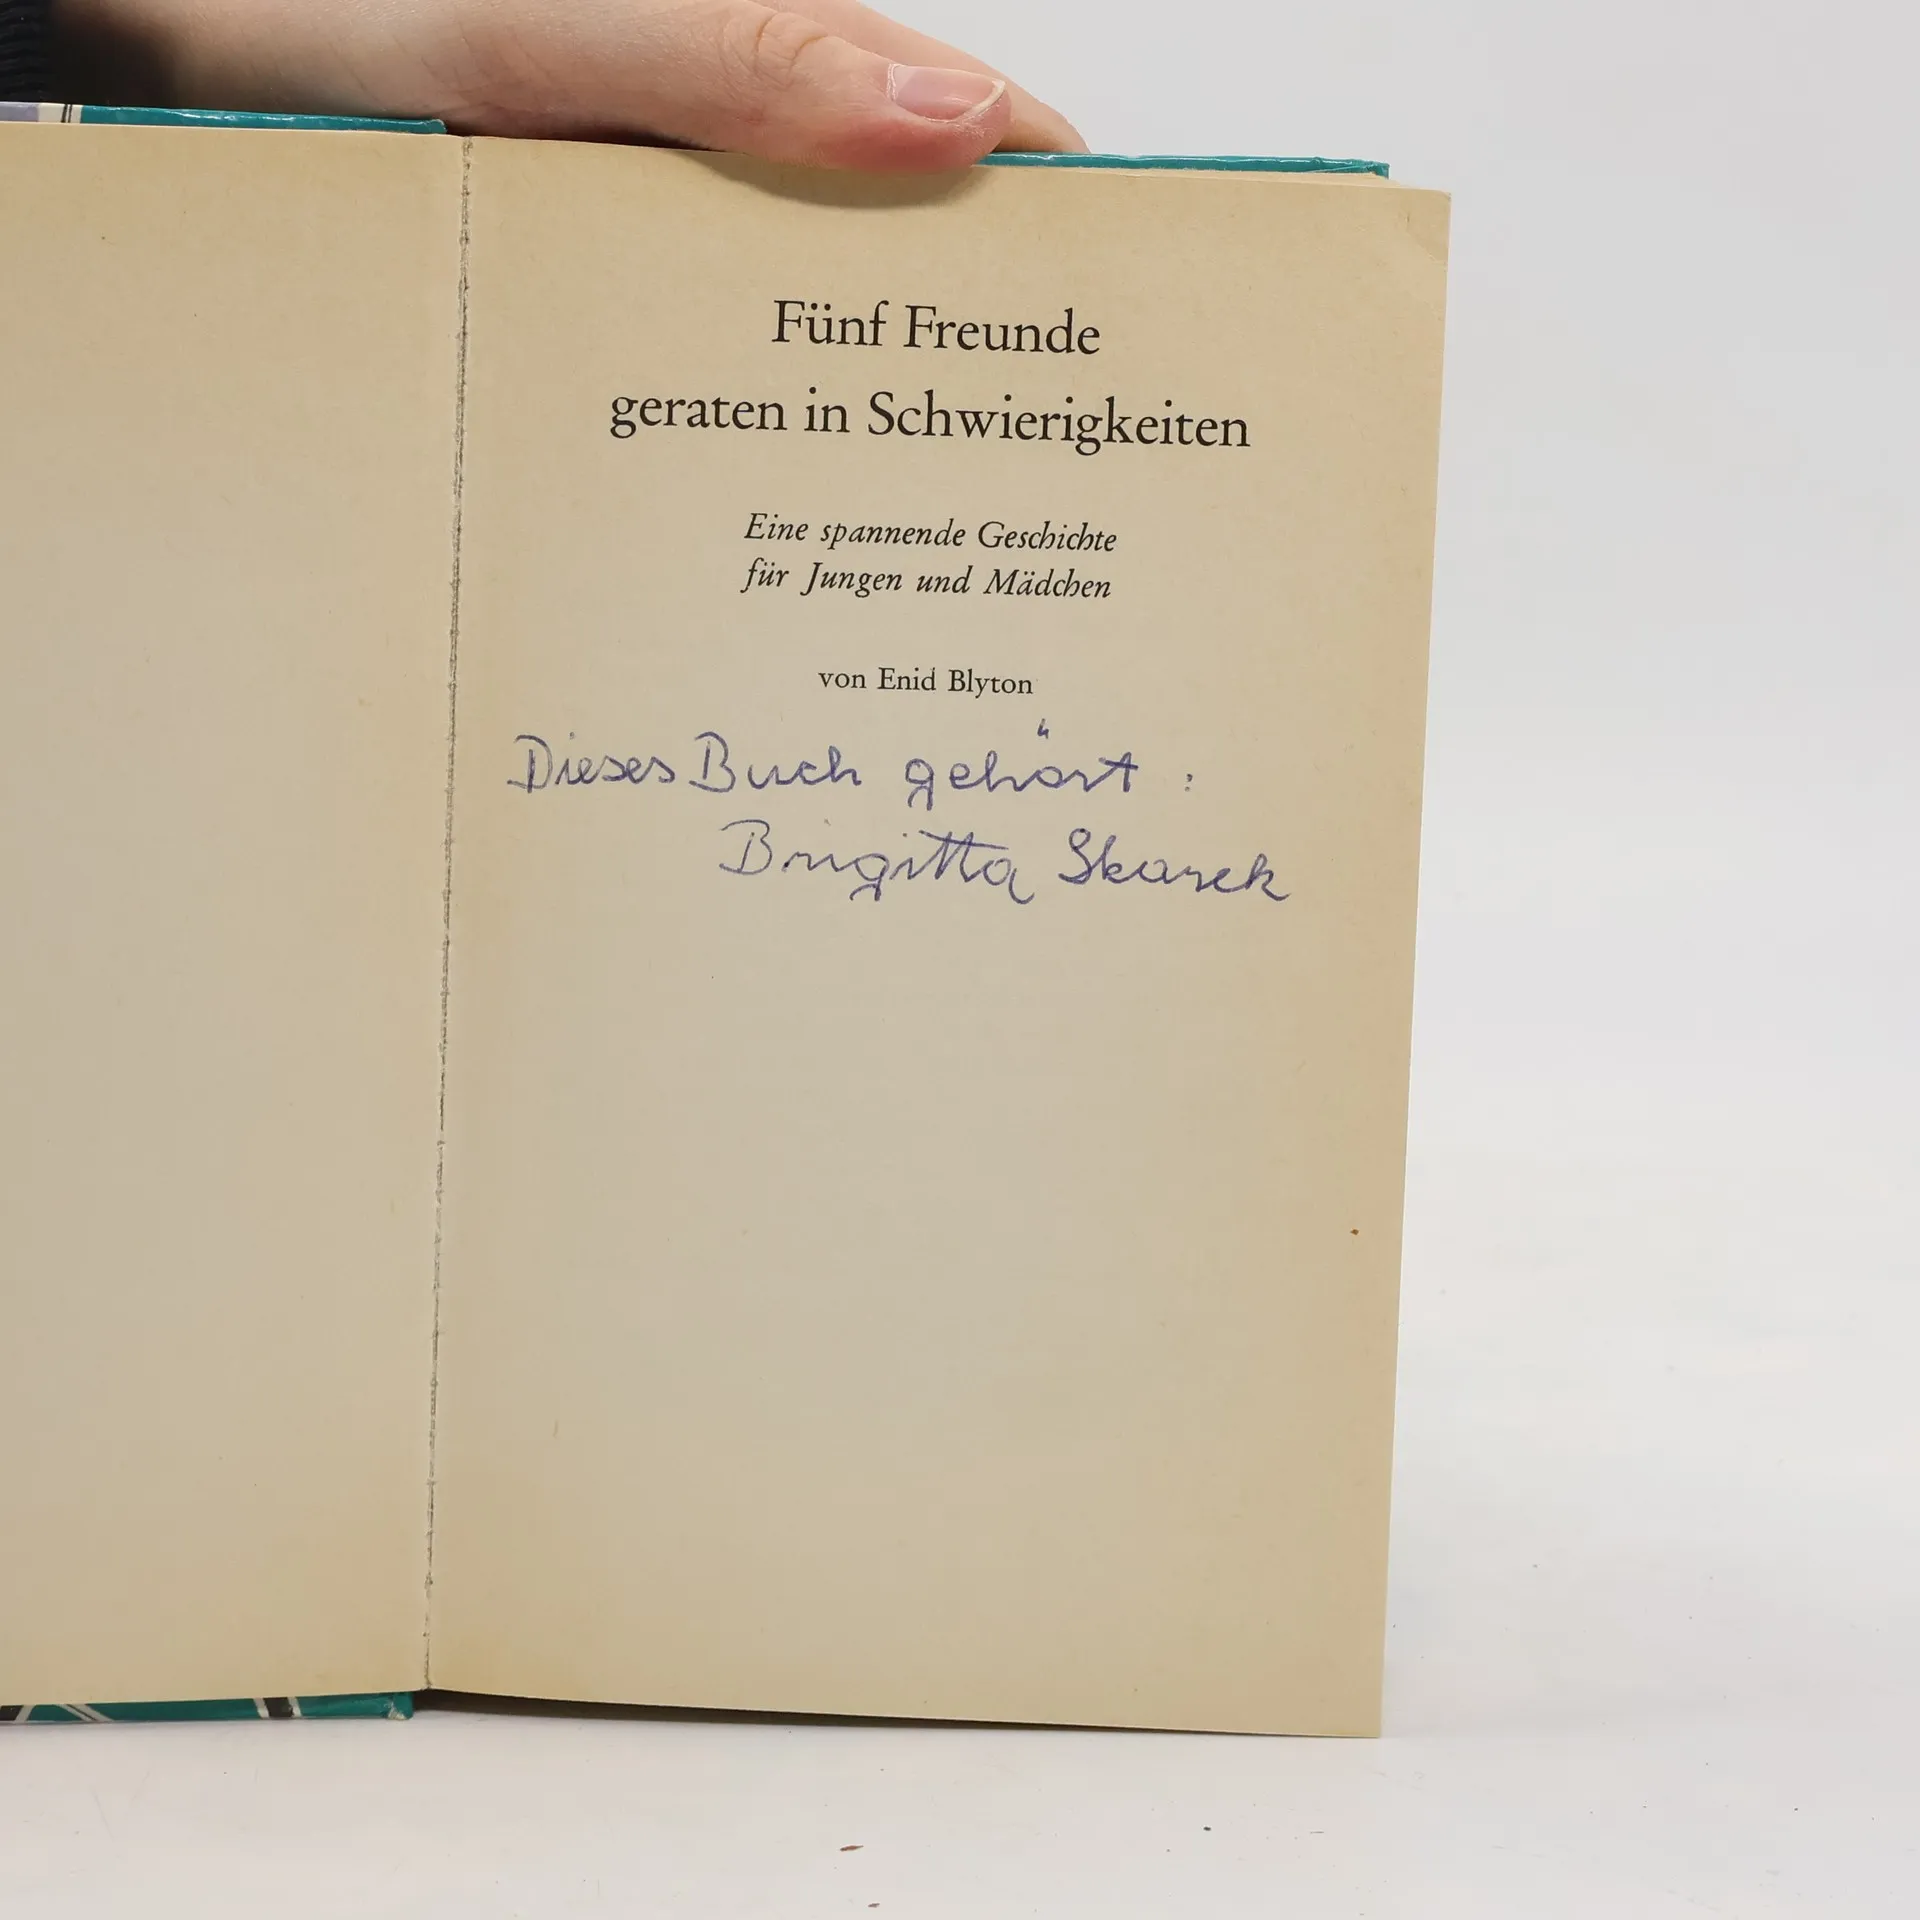 Fünf Freunde
geraten in Schwierigkeiten
Eine spannende Geschichte
für Jungen und Mädchen
von Enid Blyton
Dieses Buch gehört :
Brigitta Skarek